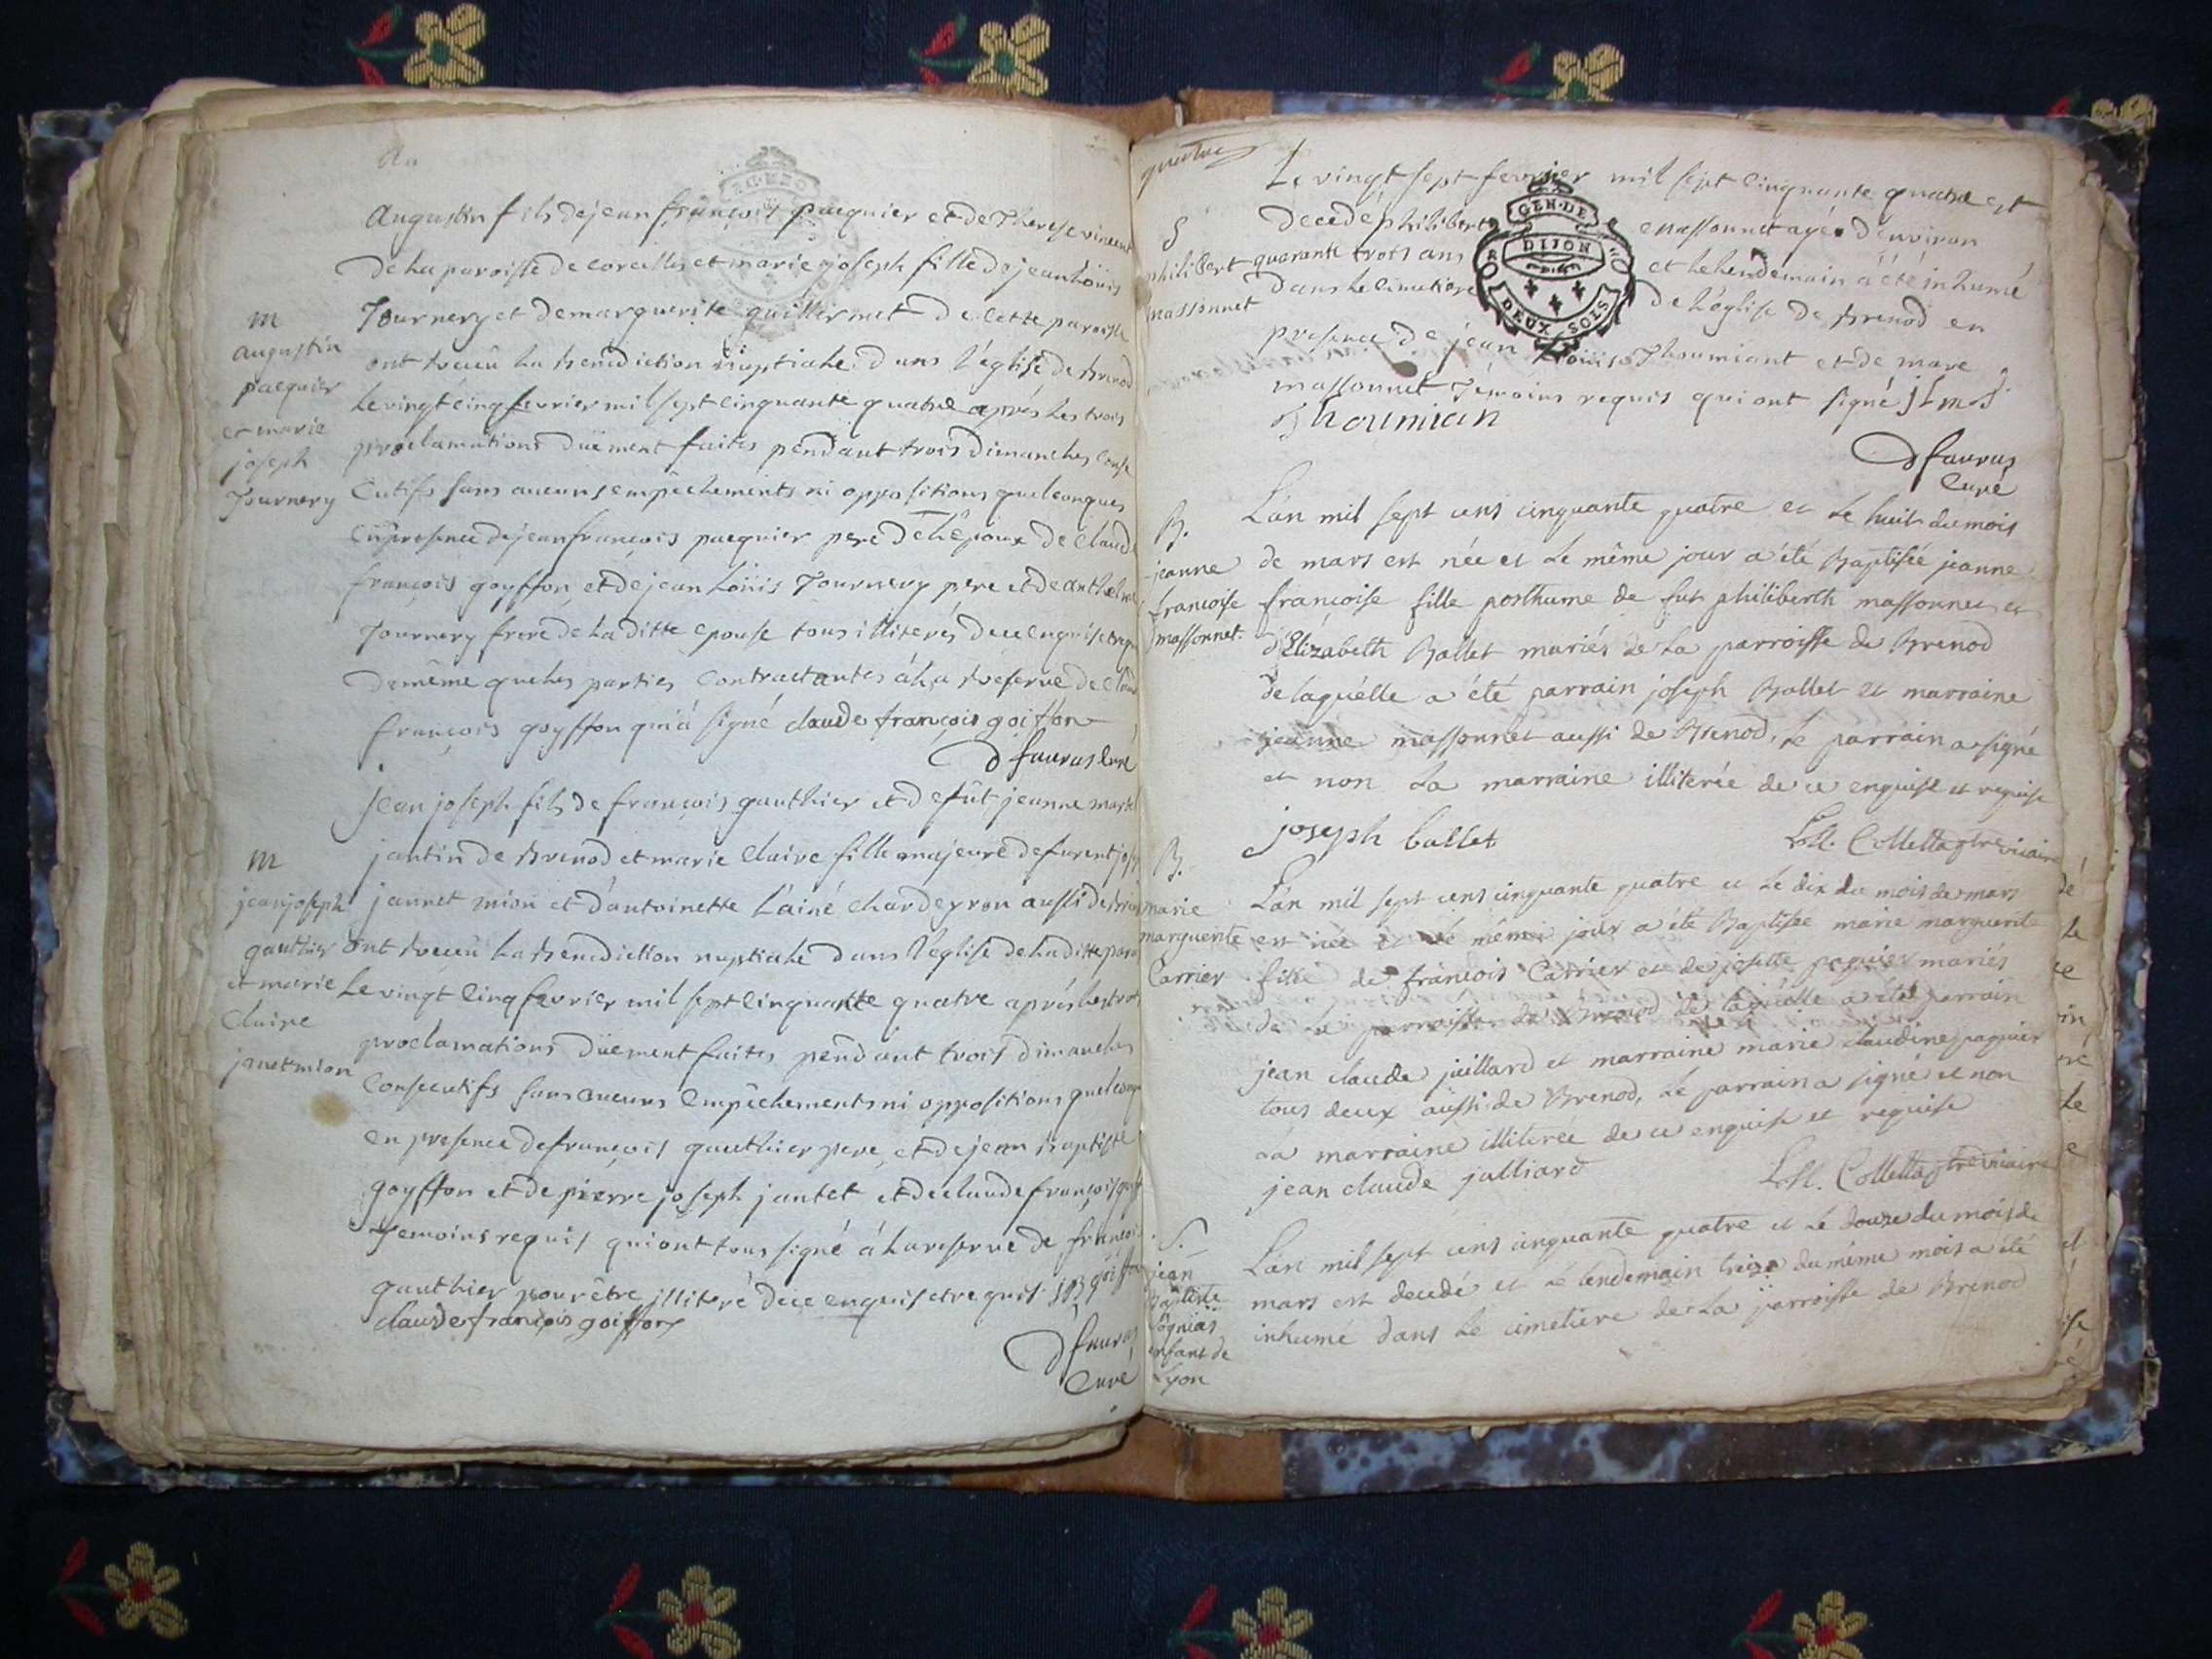 Augustin fils de jean françois pacquier et de Therese vincent
de la paroisse de corcelles et marie joseph fille de jean Loüis
Tournery et de marguerite guillermet de cette paroisse
ont receu la benediction nuptiale dans l'eglise de brenod
le vingt cinq fevrier mil sept cinquante quatre aprés les trois
proclamations düement faites pendant trois dimanches conse
cutifs sans aucuns empêchements ni oppositions quelconques
en presence de jean françois pacquier pere de L'epoux de claude
françois goyffon, et de jean Loüis Tournery pere et de anthelme
Tournery frere de la ditte epouse tous illiterés de ce enquis et requis
de même que les parties contractantes à la reserve de claude
françois goyffon qui à signé claude françois goiffon
D favrus curé
m
augustin
pacquier
et marie
joseph
Tournery
jean joseph fils de françois gauthier et de fût jeanne marie
jantin de brenod et marie claire fille majeure de furent josep
jannet mion et d'antoinette L'ainé chardeyron aussi de brenod
ont receu la benediction nuptiale dans l'eglise de la ditte paroi
le vingt cinq fevrier mil sept cinquante quatre aprés les trois
proclamations düement faites pendant trois dimanches
consecutifs sans aucuns empêchements ni oppositions quelconq
en presence de françois gauthier pere, et de jean baptiste
goyffon et de pierre joseph jantet et de claude françois goyff
temoins requis qui ont tous signé à la reserve de françois
gauthier pour être illiteré de ce enquis et requis j B goiffon
claude françois goiffon
D favrus
curé
m
jean joseph
gauthier
et marie
claire
janet mion
quatre
Le vingt sept fevrier mil sept cinquante quatre est
decedé philibert massonnet agé d'environ
quarante trois ans et le lendemain à été inhumé
dans le cimetiere de l'eglise de brenod en
presence de jean Loüis Thoumiant et de marc
massonnet temoins requis qui ont signé j L m
Thoumian
D favrus
curé
GEN·DE
DIJON
DEUX SOLS
S
philibert
massonnet
L'an mil sept cens cinquante quatre et le huit du mois
de mars est née et le même jour a été Baptisée jeanne
françoise fille posthume de fut philiberth massonnet et
d'Elizabeth Ballet mariés de la parroisse de Brenod
de laquélle a été parrain joseph Ballet et marraine
jeanne massonnet aussi de Brenod, le parrain a signé
et non la marraine illiterée de ce enquise et requise
joseph ballet
Colletta ptre vicaire
B.
jeanne
françoise
massonnet.
L'an mil sept cens cinquante quatre et le dix du mois de mars
est née et le même jour a été Baptisée marie marguerite
fille de françois Carrier et de josette paquier mariés
de la parroisse de Brenod de laquélle a été parrain
jean claude juillard et marraine marie claudine paquier
tous deux aussi de Brenod, le parrain a signé et non
la marraine illiterée de ce enquise et requise
jean claude julliard
Colletta ptre vicaire
B.
marie
marguerite
Carrier
L'an mil sept cens cinquante quatre et le douze du mois de
mars est decedé et le lendemain treize du même mois a été
inhumé dans le cimetiere de la parroisse de Brenod
S.
jean
Baptiste
enfant de
Lyon